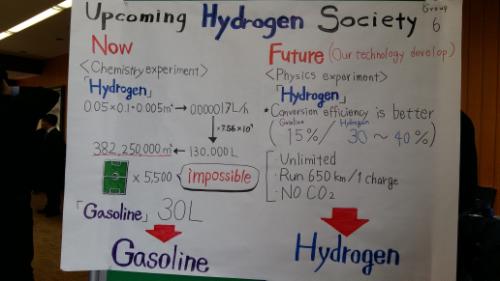 Upcoming Hydrogen Society
Group 6
Now
<Chemistry experiment>
「Hydrogen」
0.05×0.1×0.005m² → 0.000017L/h
×7.56×10⁹
382,250,000m² ← 130,000L
×5,500 impossible
「Gasoline」 30L
Gasoline
Future (Our technology develop)
<Physics experiment>
「Hydrogen」
*Conversion efficiency is better
(Gasoline 15% / Hydrogen 30~40%)
・Unlimited
・Run 650km/1 charge
・NO CO₂
Hydrogen